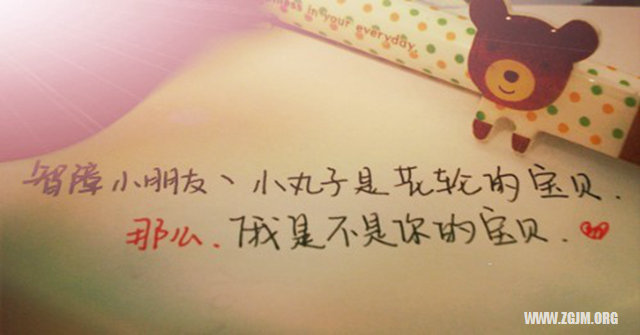 ness in your everyday.
智障小朋友丶小丸子是花轮的宝贝.
那么.俄是不是你的宝贝.
WWW.ZGJM.ORG